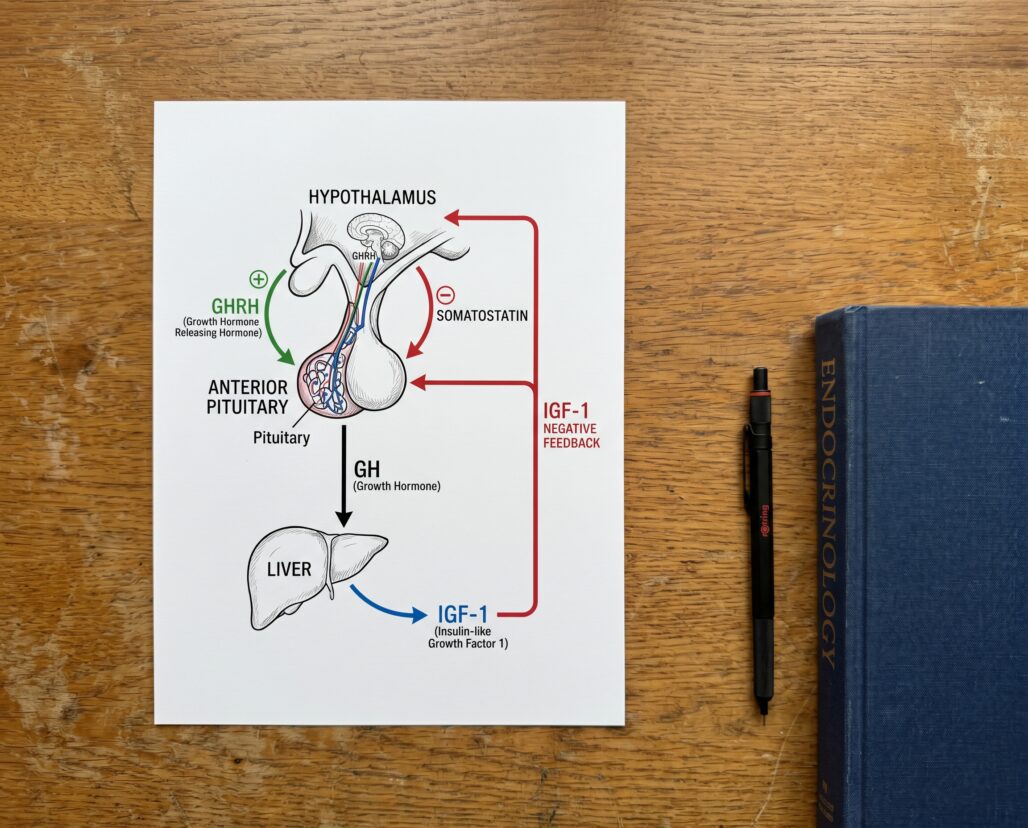 HYPOTHALAMUS
GHRH
+
GHRH
(Growth Hormone
Releasing Hormone)
−
SOMATOSTATIN
ANTERIOR
PITUITARY
Pituitary
IGF-1
NEGATIVE
FEEDBACK
GH
(Growth Hormone)
LIVER
IGF-1
(Insulin-like
Growth Factor 1)
rotring
ENDOCRINOLOGY